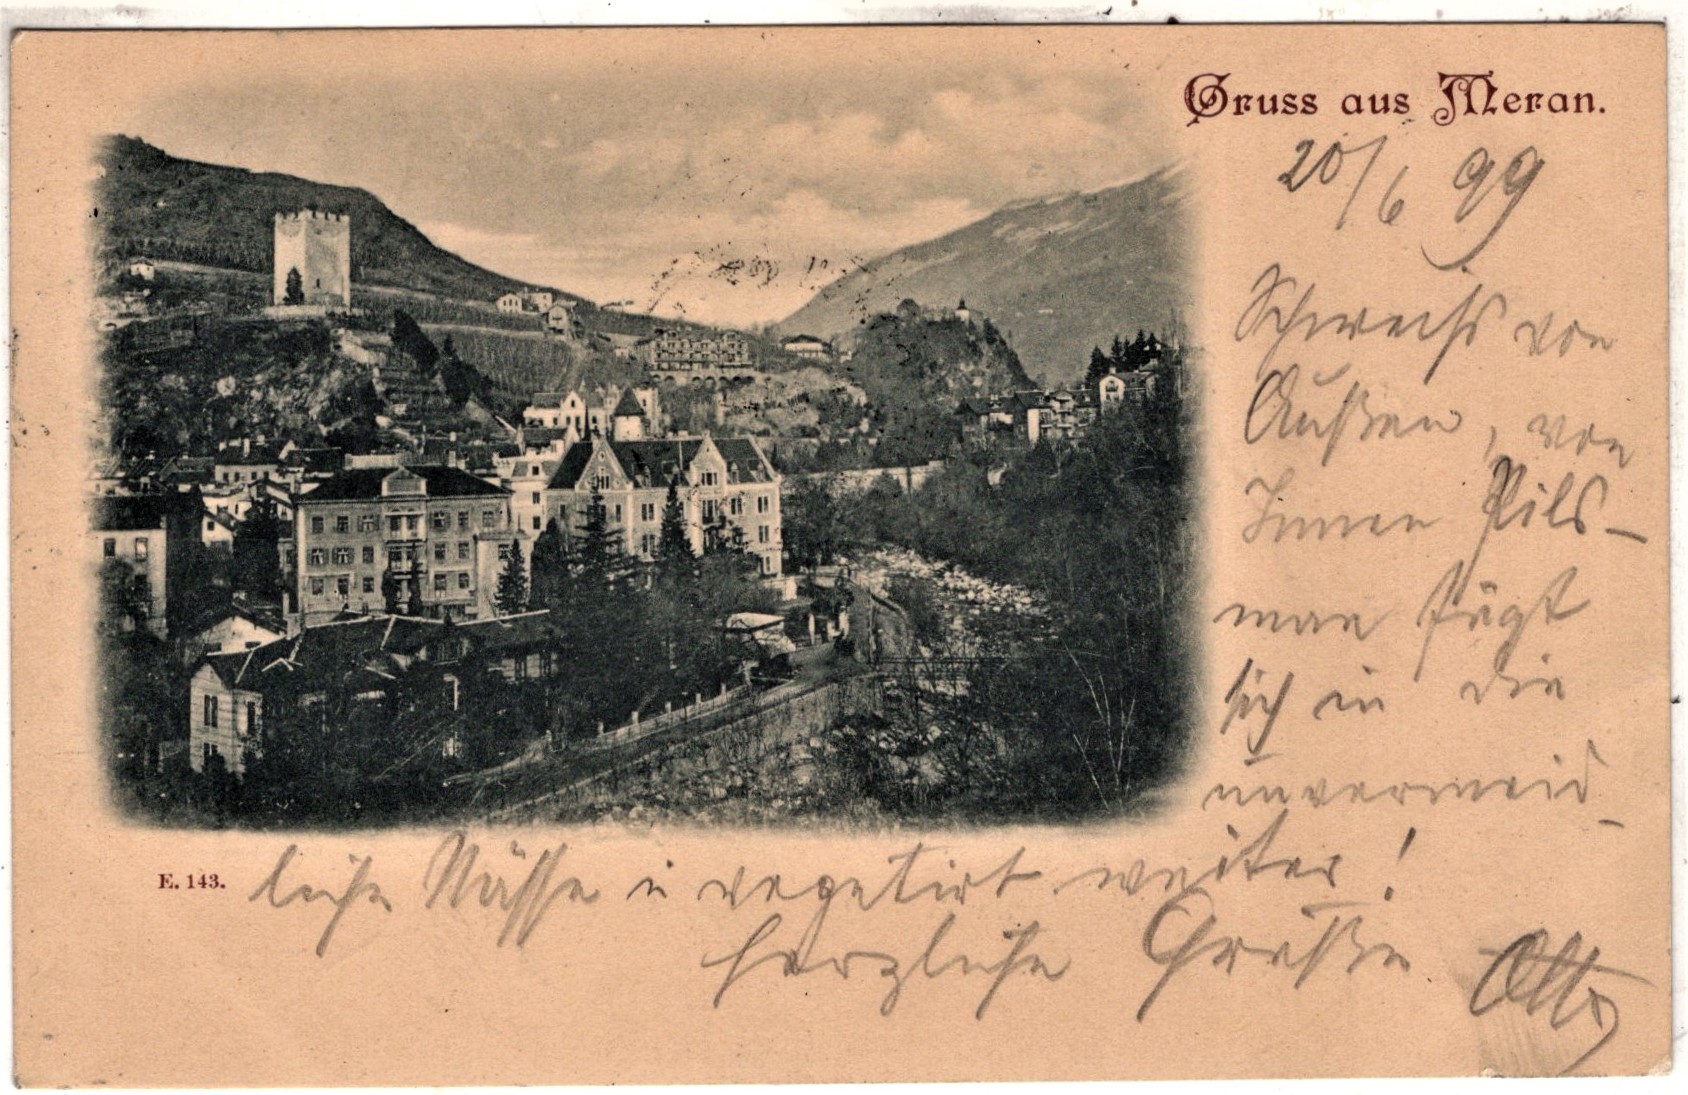 Gruss aus Meran.
20/6 99
Schweiß von
Außen, von
Innen Pils –
man fügt
sich in die
unvermeid-
E. 143.
liche Nässe u vegetirt weiter!
herzliche Grüße Otto